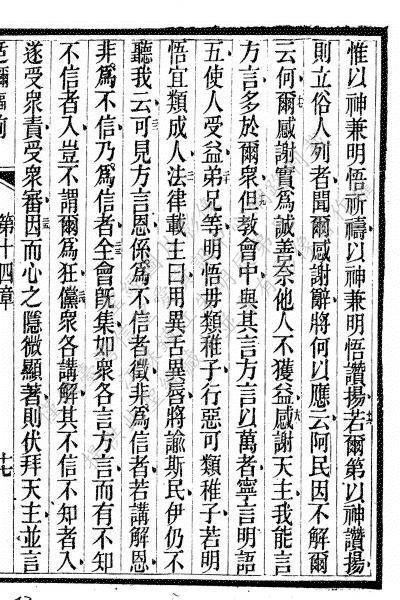 惟以神兼明悟祈禱以神兼明悟讚揚若爾第以神讚揚
則立俗人列者聞爾感謝辭將何以應云阿民因不解爾
云何爾感謝實爲誠善奈他人不獲益感謝天主我能言
方言多於爾衆但教會中與其言方言以萬者寧言明語
五使人受益弟兄等明悟毋類稚子行惡可類稚子若明
悟宜類成人法律載主曰用異舌異唇將諭斯民伊仍不
聽我云可見方言恩係爲不信者徵非爲信者若講解恩
非爲不信乃爲信者全會旣集如衆各言方言而有不知
不信者入豈不謂爾爲狂儻衆各講解其不信不知者入
遂受衆責受衆審因而心之隱微顯著則伏拜天主並言
第十四章
十七